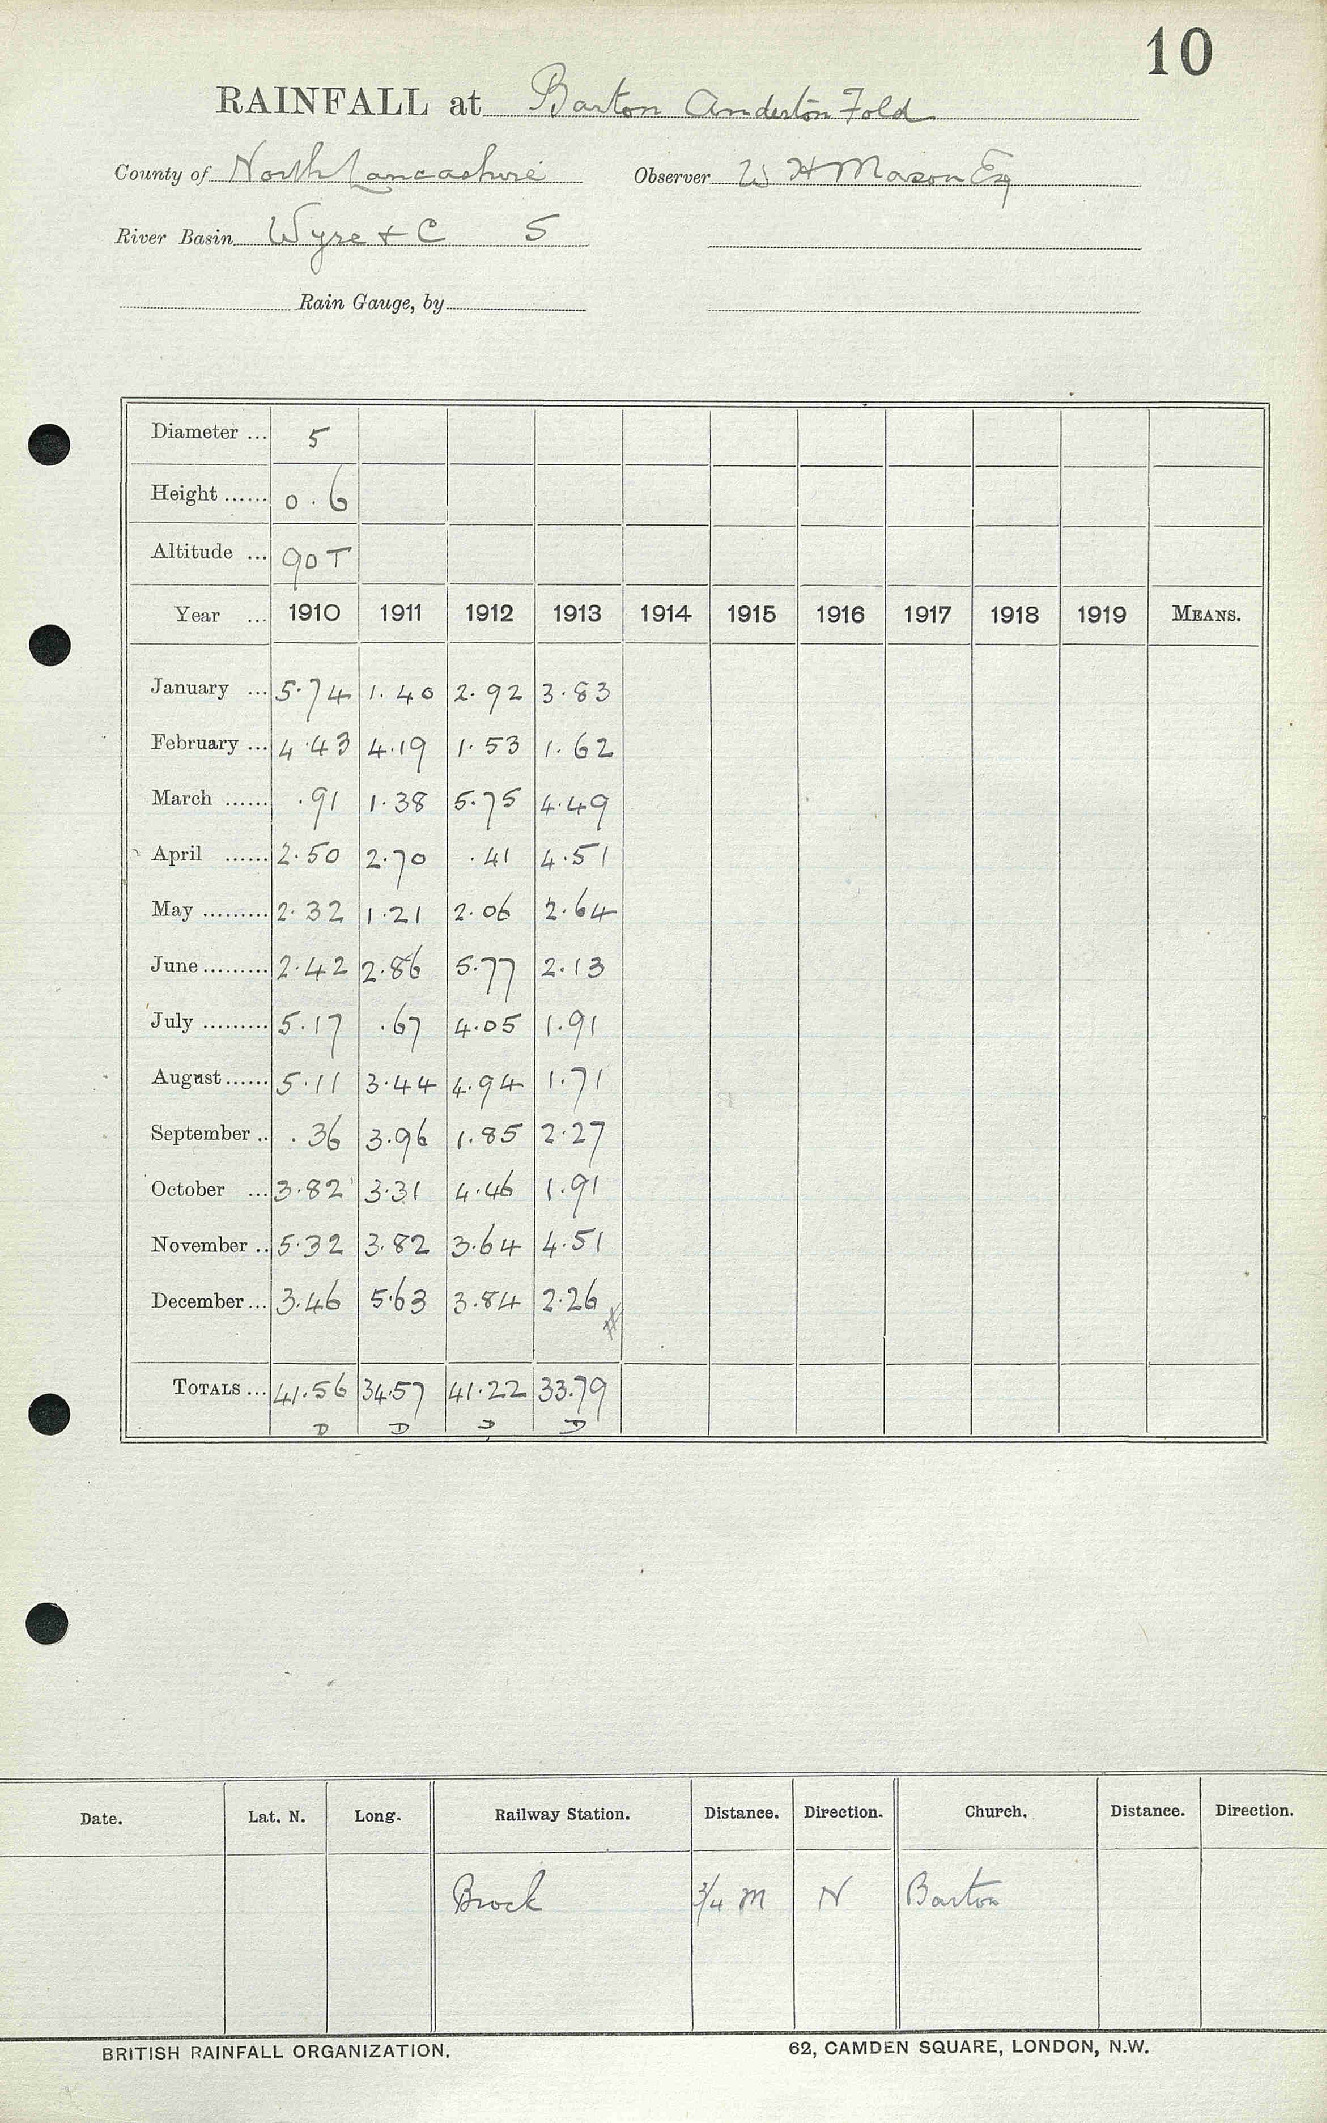 10
RAINFALL at Barton Anderton Fold
County of North Lancashire Observer W H Mason Esq
River Basin Wyre & C 5
Rain Gauge, by
Diameter ... 5
Height ...... 0.6
Altitude ... 90 T
Year ... 1910 1911 1912 1913 1914 1915 1916 1917 1918 1919 MEANS.
January ... 5.74 1.40 2.92 3.83
February ... 4.43 4.19 1.53 1.62
March ...... .91 1.38 5.75 4.49
April ...... 2.50 2.70 .41 4.51
May ......... 2.32 1.21 2.06 2.64
June ......... 2.42 2.86 5.77 2.13
July ......... 5.17 .67 4.05 1.91
August ...... 5.11 3.44 4.94 1.71
September .. .36 3.96 1.85 2.27
October ... 3.82 3.31 4.46 1.91
November .. 5.32 3.82 3.64 4.51
December ... 3.46 5.63 3.84 2.26
TOTALS ... 41.56 34.57 41.22 33.79
D D D D
Date. Lat. N. Long. Railway Station. Distance. Direction. Church. Distance. Direction.
Brock 3/4 M N Barton
BRITISH RAINFALL ORGANIZATION. 62, CAMDEN SQUARE, LONDON, N.W.